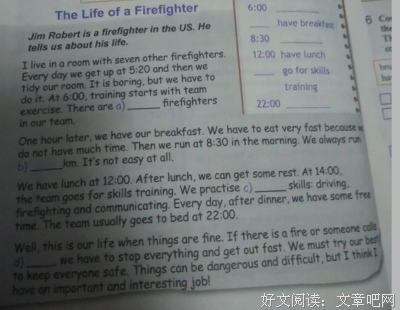 The Life of a Firefighter
Jim Robert is a firefighter in the US. He
tells us about his life.
I live in a room with seven other firefighters.
Every day we get up at 5:20 and then we
tidy our room. It is boring, but we have to
do it. At 6:00, training starts with team
exercise. There are a) ______ firefighters
in our team.
One hour later, we have our breakfast. We have to eat very fast because w
do not have much time. Then we run at 8:30 in the morning. We always run
b) ______ km. It's not easy at all.
We have lunch at 12:00. After lunch, we can get some rest. At 14:00,
the team goes for skills training. We practise c) ______ skills: driving,
firefighting and communicating. Every day, after dinner, we have some free
time. The team usually goes to bed at 22:00.
Well, this is our life when things are fine. If there is a fire or someone calls
d) ______ we have to stop everything and get out fast. We must try our best
to keep everyone safe. Things can be dangerous and difficult, but I think I
have an important and interesting job!
6:00 ______
____ have breakfast
8:30 ______
12:00 have lunch
____ go for skills
training
22:00 ______
6 Co
好文阅读：文章吧网